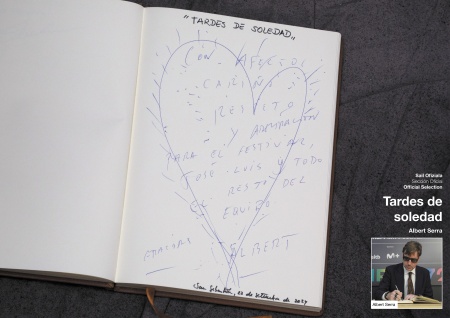 "TARDES DE SOLEDAD"
CON AFECTO,
CARIÑO
RESPETO
Y ADMIRACIÓN
PARA EL FESTIVAL,
JOSE LUIS Y TODO
EL RESTO DEL
EQUIPO
ALBERT
San Sebastián, 23 de setiembre de
Sail Ofiziala
Sección Oficial
Official Selection
Tardes de
soledad
Albert Serra
M+
Albert Serra